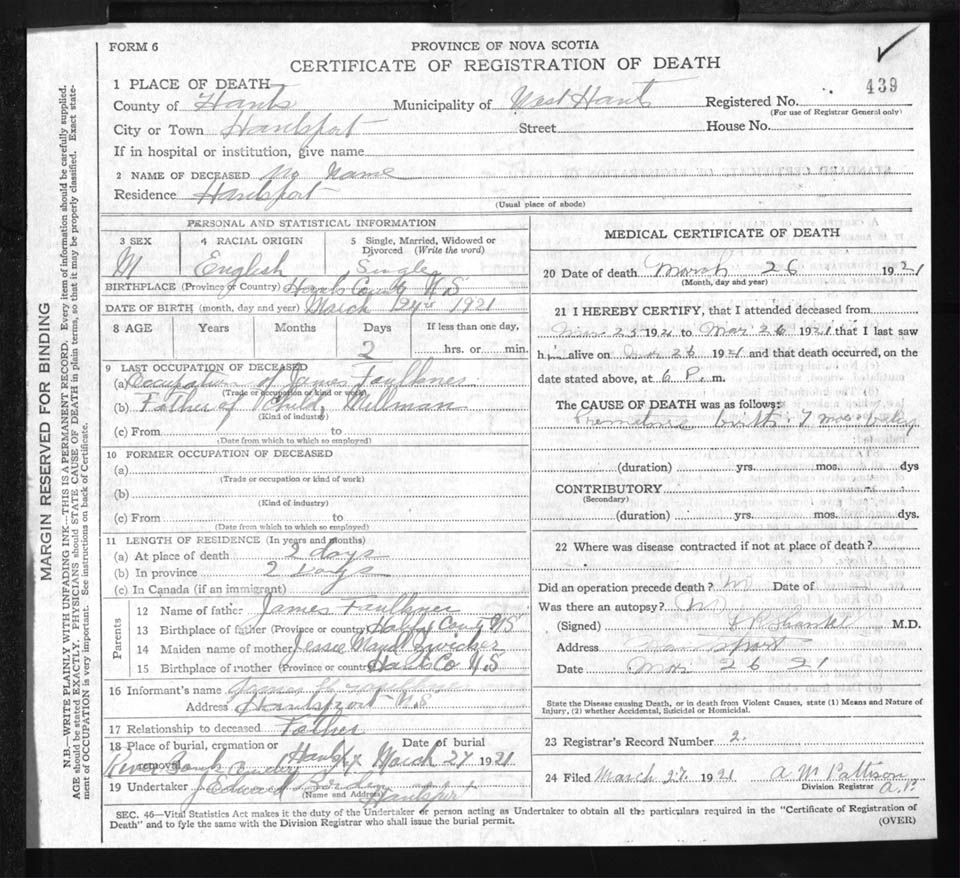 FORM 6
PROVINCE OF NOVA SCOTIA
CERTIFICATE OF REGISTRATION OF DEATH
439
1 PLACE OF DEATH
County of Hants Municipality of West Hants Registered No.
(For use of Registrar General only)
City or Town Hantsport Street House No.
If in hospital or institution, give name
2 NAME OF DECEASED No Name
Residence Hantsport
(Usual place of abode)
MARGIN RESERVED FOR BINDING
N.B.—WRITE PLAINLY WITH UNFADING INK—THIS IS A PERMANENT RECORD. Every item of information should be carefully supplied.
AGE should be stated EXACTLY. PHYSICIANS should STATE CAUSE OF DEATH in plain terms, so that it may be properly classified. Exact state-
ment of OCCUPATION is very important. See instructions on back of Certificate.
PERSONAL AND STATISTICAL INFORMATION
3 SEX 4 RACIAL ORIGIN 5 Single, Married, Widowed or
Divorced (Write the word)
M English Single
BIRTHPLACE (Province or Country) Hants County N S
DATE OF BIRTH (month, day and year) March 24 1921
8 AGE Years Months Days If less than one day,
2 hrs. or min.
9 LAST OCCUPATION OF DECEASED
(a) Occupation of James Faulkner
(Trade or occupation or kind of work)
(b) Father of Child, Millman
(Kind of industry)
(c) From to
(Date from which to which so employed)
10 FORMER OCCUPATION OF DECEASED
(a)
(Trade or occupation or kind of work)
(b)
(Kind of industry)
(c) From to
(Date from which to which so employed)
11 LENGTH OF RESIDENCE (In years and months)
(a) At place of death 2 days
(b) In province 2 days
(c) In Canada (if an immigrant)
Parents
12 Name of father James Faulkner
13 Birthplace of father (Province or country) County N S
14 Maiden name of mother Jessie Maud Zwicker
15 Birthplace of mother (Province or country) Hants Co N S
16 Informant's name James Faulkner
Address Hantsport N.S
17 Relationship to deceased Father
18 Place of burial, cremation or removal Date of burial
River Bank Hants March 27 1921
19 Undertaker J Edward Borden
(Name and Address) Hantsport
MEDICAL CERTIFICATE OF DEATH
20 Date of death March 26 1921
(Month, day and year)
21 I HEREBY CERTIFY, that I attended deceased from
Mar 25 1921 to Mar 26 1921 that I last saw
him alive on 26 1921 and that death occurred, on the
date stated above, at 6 P. m.
The CAUSE OF DEATH was as follows:
Premature birth. 7 mos baby
(duration) yrs. mos. dys
CONTRIBUTORY
(Secondary)
(duration) yrs. mos. dys.
22 Where was disease contracted if not at place of death?
Did an operation precede death? No Date of
Was there an autopsy? No
(Signed) M.D.
Address Hantsport
Date Mar 26 21
State the Disease causing Death, or in death from Violent Causes, state (1) Means and Nature of
Injury, (2) whether Accidental, Suicidal or Homicidal.
23 Registrar's Record Number 2.
24 Filed March 27 1921 A W Pattison
Division Registrar
SEC. 46—Vital Statistics Act makes it the duty of the Undertaker or person acting as Undertaker to obtain all the particulars required in the "Certificate of Registration of
Death" and to fyle the same with the Division Registrar who shall issue the burial permit.
(OVER)